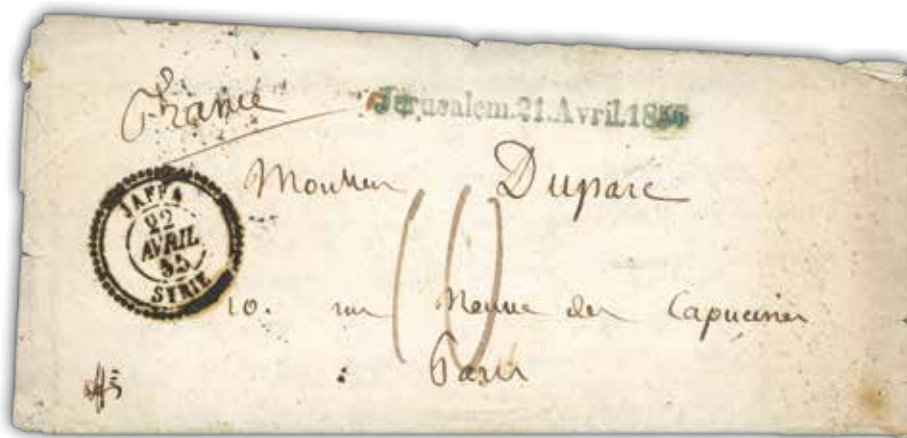 France
Jerusalem.21.Avril.1855
JAFFA
22
AVRIL
55
SYRIE
Monsieur Duparc
10
10. rue Neuve des Capucines
à Paris